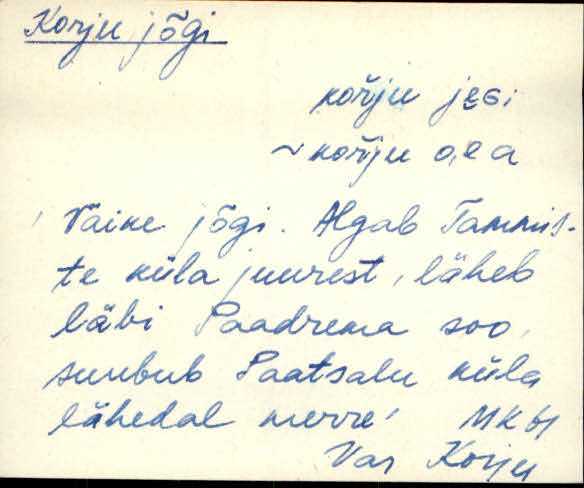 Korju jõgi
kořju jɛɢi
~ kořju o̭ɛa
' Väike jõgi. Algab Tammis-
te küla juurest, läheb
läbi Paadrema soo,
suubub Paatsalu küla
lähedal merre' MK 61
Var Korju